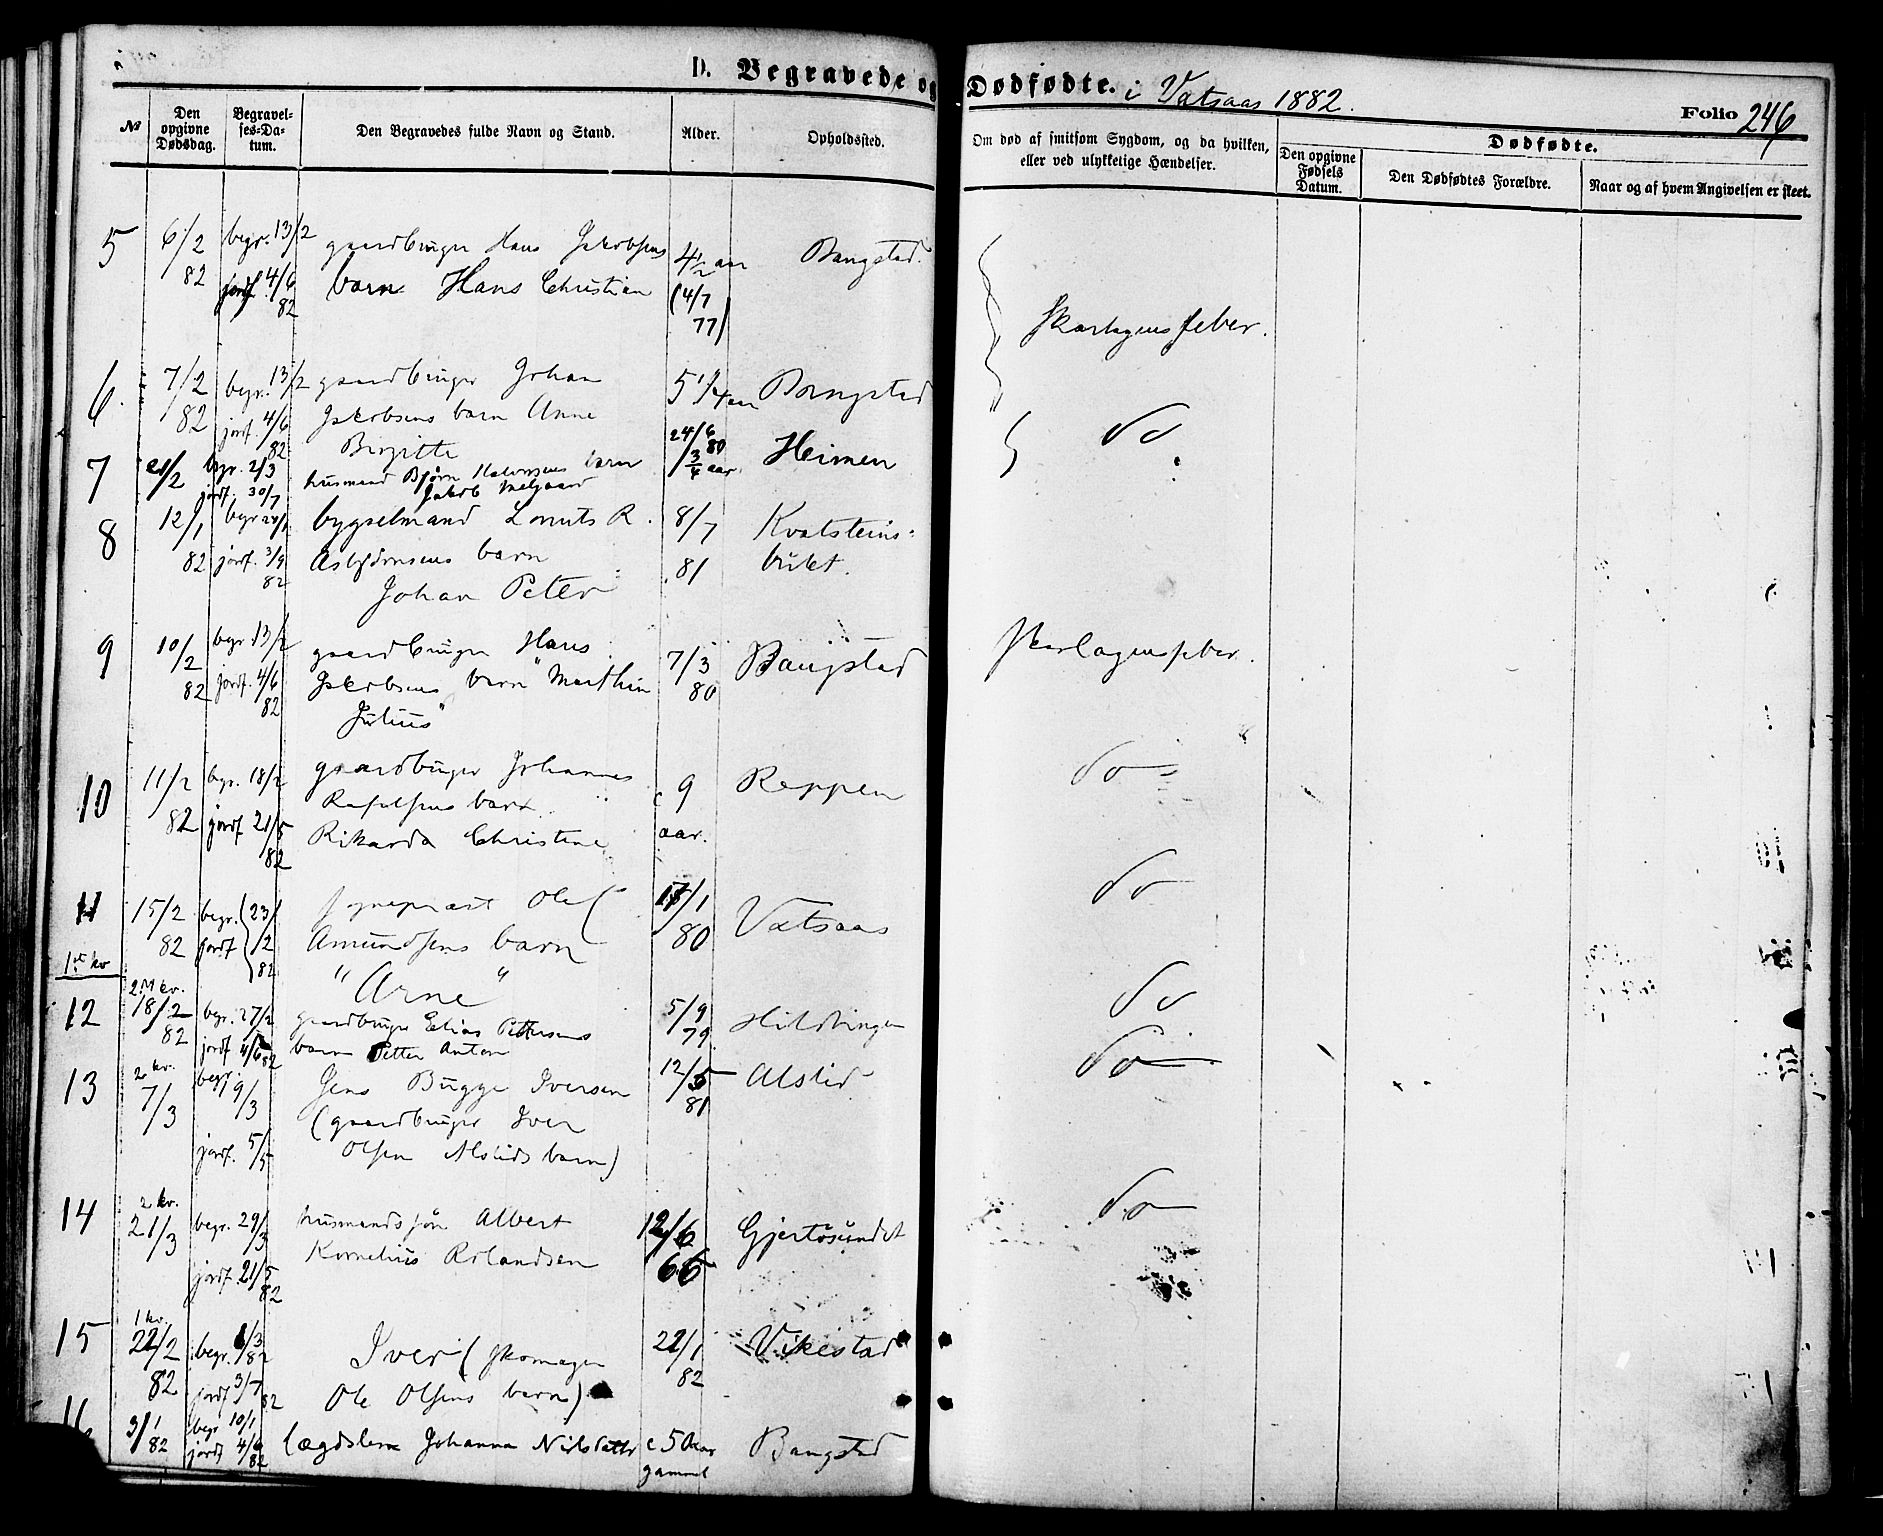 D. Begravede og Dødfødte. i Vatsaas 1882.
Folio 246
№
Den opgivne Dødsdag.
Begravelses-Datum.
Den Begravedes fulde Navn og Stand.
Alder.
Opholdssted.
Om død af smitsom Sygdom, og da hvilken, eller ved ulykkelige Hændelser.
Dødfødte.
Den opgivne Fødsels Datum.
Den Dødfødtes Forældre.
Naar og af hvem Angivelsen er skeet.
5 6/2 begr. 13/2 gaardbruger Hans Jakobsens 4½ aar Bangstad
82 jordf. 4/6 barn Hans Christian (4/7
82 77)
Skarlagensfeber.
6. 7/2 begr. 13/2 gaardbruger Johan 5 1/4 aar Bangstad
82 jordf. 4/6 Jakobsens barn Anne
82 Birgitte 24/6 80
Do
7 21/2 begr. 2/3 husmand Bjørn Halvorsens barn 3/4 aar Heimen
jordf. 30/7 Jakob Melgaard
8 12/1 begr. bygselmand R. 8/7 Kvalsteins-
82 jordf. 3/9 Asbjørnsens barn 81
82 Johan Peter
9 10/2 begr. 13/2 gaardbruger Hans 7/3 Bangstad Skarlagensfeber.
82 jordf. 4/6 Jakobsens barn "Marthin 80
82 Julius"
10 11/2 begr. 18/2 gaardbruger Johannes c 9 Reppen Do
82 jordf 21/5 barn aar.
82 Rikarda Christine
11 15/2 begr. 23/2 Ole 17/1 Vatsaas Do
82 jordf 82 Amundsens barn 80
1ste kv "Arne"
2. kv.
12 18/2 begr. 27/2 gaardbruger Elias Pettersens 5/9 Hildringen Do
82 jordf 4/6 82 barn Petter Anton 79
2 kv.
13 7/3 begr. 19/3 Jens Bugge Iversen 12/5 Alstid Do
(gaardbruger Iver 81
jordf. 5/5 Olsen Alstids barn)
2 kv.
14 21/3 begr. 29/3 husmandssøn Albert 12/6 Gjertøsundet Do
jordf. 21/5 Kornelius Rolandsen 66
82
1 kv.
15 22/2 begr. 1/3 82 Iver (skomager 22/1 Vikestad
82 jordf 3/7 82 Ole Olsens barn) 82
16 3/1 begr 10/1
82 jordf 4/6 82 lægdslem Johanna Nilsdatter c 50 aar Bangstad
gammel